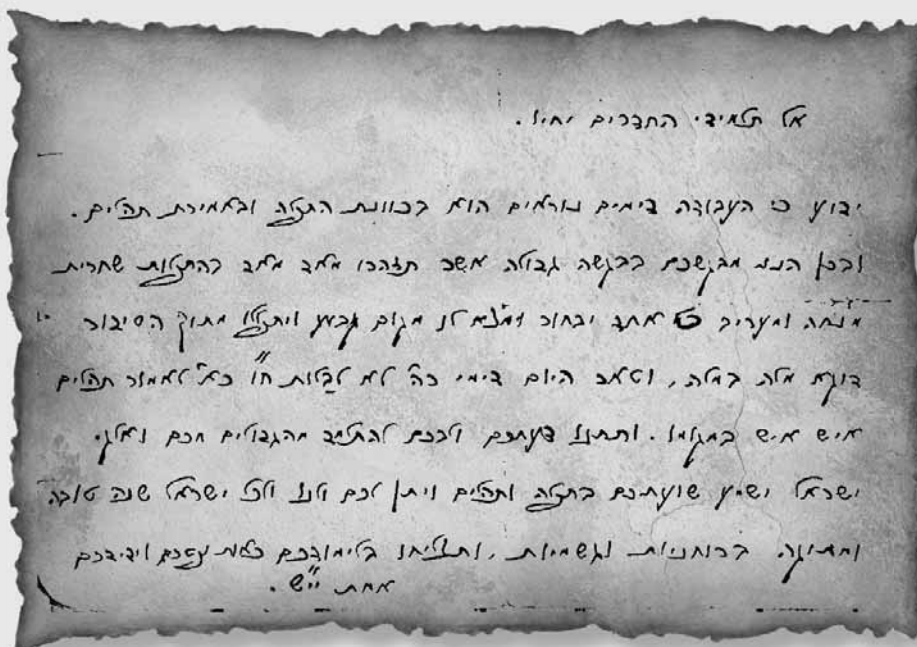 אל תלמידי החדרים יחיו.
ידוע כי העבודה בימים נוראים הוא בכוונת התפלה ובאמירת תהלים.
ובכן הנני מבקשכם בבקשה גדולה אשר תזהרו מאד מאד בהתפלות שחרית
מנחה ומעריב כל אחד יבחור ומצא לו מקום קבוע ויתפללו מתוך השידור
דוקא מלה במלה, ושאר היום בימי ר״ה לא לבלות ח״ו כ״א לאמור תהלים
איש איש במקומו. ותתנו דעתכם ולבכם להתלמד מהגדולים מכם ואלקי
ישראל ישמע שועתכם בתפלה ותהלים ויתן לכם ולנו ולכל ישראל שנה טובה
ומתוקה ברוחניות וגשמיות, ותצליחו בלימודכם כאות נפשכם וידידכם
אמת י״ש.